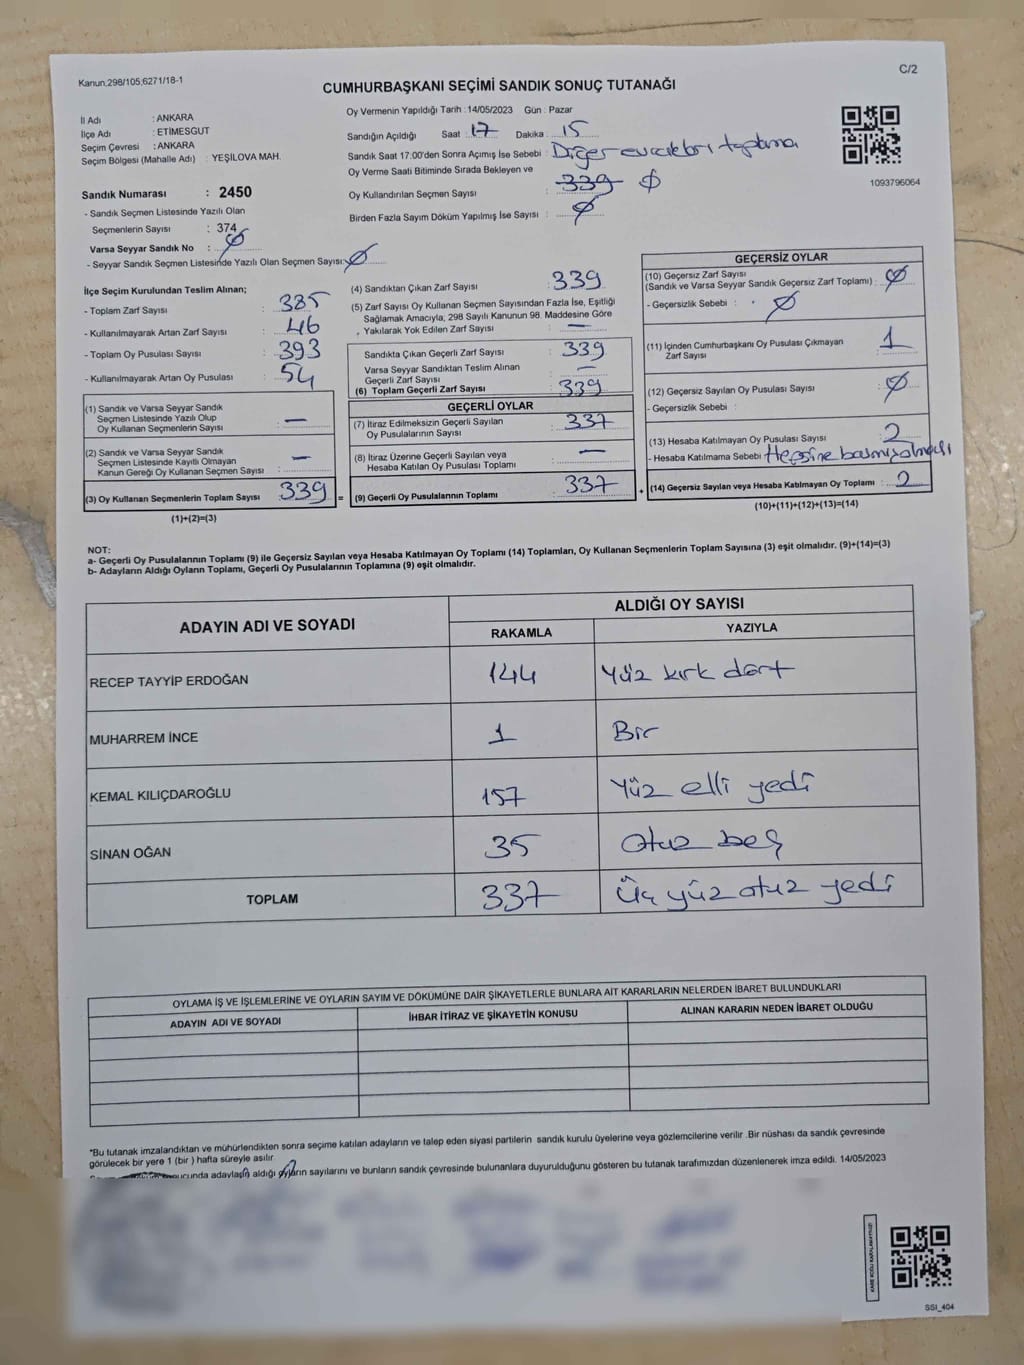 Kanun,298/105,6271/18-1
C/2
CUMHURBAŞKANI SEÇİMİ SANDIK SONUÇ TUTANAĞI
İl Adı : ANKARA
İlçe Adı : ETİMESGUT
Seçim Çevresi : ANKARA
Seçim Bölgesi (Mahalle Adı) : YEŞİLOVA MAH.
Oy Vermenin Yapıldığı Tarih : 14/05/2023 Gün : Pazar
Sandığın Açıldığı Saat : 17 Dakika : 15
Sandık Saat 17:00'den Sonra Açımış İse Sebebi : Diğer evrakları toplama
Oy Verme Saati Bitiminde Sırada Bekleyen ve
Oy Kullandırılan Seçmen Sayısı : 339 Ø
Birden Fazla Sayım Döküm Yapılmış İse Sayısı : Ø
1093796064
Sandık Numarası : 2450
- Sandık Seçmen Listesinde Yazılı Olan
Seçmenlerin Sayısı : 374
Varsa Seyyar Sandık No : Ø
- Seyyar Sandık Seçmen Listesinde Yazılı Olan Seçmen Sayısı: Ø
İlçe Seçim Kurulundan Teslim Alınan;
- Toplam Zarf Sayısı : 385
- Kullanılmayarak Artan Zarf Sayısı : 46
- Toplam Oy Pusulası Sayısı : 393
- Kullanılmayarak Artan Oy Pusulası : 54
(1) Sandık ve Varsa Seyyar Sandık
Seçmen Listesinde Yazılı Olup
Oy Kullanan Seçmenlerin Sayısı : —
(2) Sandık ve Varsa Seyyar Sandık
Seçmen Listesinde Kayıtlı Olmayan
Kanun Gereği Oy Kullanan Seçmen Sayısı : —
(3) Oy Kullanan Seçmenlerin Toplam Sayısı : 339 =
(1)+(2)=(3)
(4) Sandıktan Çıkan Zarf Sayısı : 339
(5) Zarf Sayısı Oy Kullanan Seçmen Sayısından Fazla İse, Eşitliği
Sağlamak Amacıyla; 298 Sayılı Kanunun 98. Maddesine Göre
Yakılarak Yok Edilen Zarf Sayısı : —
Sandıkta Çıkan Geçerli Zarf Sayısı : 339
Varsa Seyyar Sandıktan Teslim Alınan
Geçerli Zarf Sayısı : —
(6) Toplam Geçerli Zarf Sayısı : 339
GEÇERLİ OYLAR
(7) İtiraz Edilmeksizin Geçerli Sayılan
Oy Pusulalarının Sayısı : 337
(8) İtiraz Üzerine Geçerli Sayılan veya
Hesaba Katılan Oy Pusulası Toplamı : —
(9) Geçerli Oy Pusulalarının Toplamı : 337 +
GEÇERSİZ OYLAR
(10) Geçersiz Zarf Sayısı
(Sandık ve Varsa Seyyar Sandık Geçersiz Zarf Toplamı) : Ø
- Geçersizlik Sebebi : Ø
(11) İçinden Cumhurbaşkanı Oy Pusulası Çıkmayan
Zarf Sayısı : 1
(12) Geçersiz Sayılan Oy Pusulası Sayısı : Ø
- Geçersizlik Sebebi :
(13) Hesaba Katılmayan Oy Pusulası Sayısı : 2
- Hesaba Katılmama Sebebi : Hepsine basmış olması
(14) Geçersiz Sayılan veya Hesaba Katılmayan Oy Toplamı : 2
(10)+(11)+(12)+(13)=(14)
NOT:
a- Geçerli Oy Pusulalarının Toplamı (9) ile Geçersiz Sayılan veya Hesaba Katılmayan Oy Toplamı (14) Toplamları, Oy Kullanan Seçmenlerin Toplam Sayısına (3) eşit olmalıdır. (9)+(14)=(3)
b- Adayların Aldığı Oyların Toplamı, Geçerli Oy Pusulalarının Toplamına (9) eşit olmalıdır.
ADAYIN ADI VE SOYADI
ALDIĞI OY SAYISI
RAKAMLA YAZIYLA
RECEP TAYYİP ERDOĞAN 144 Yüz kırk dört
MUHARREM İNCE 1 Bir
KEMAL KILIÇDAROĞLU 157 Yüz elli yedi
SİNAN OĞAN 35 Otuz beş
TOPLAM 337 Üç yüz otuz yedi
OYLAMA İŞ VE İŞLEMLERİNE VE OYLARIN SAYIM VE DÖKÜMÜNE DAİR ŞİKAYETLERLE BUNLARA AİT KARARLARIN NELERDEN İBARET BULUNDUKLARI
ADAYIN ADI VE SOYADI İHBAR İTİRAZ VE ŞİKAYETİN KONUSU ALINAN KARARIN NEDEN İBARET OLDUĞU
*Bu tutanak imzalandıktan ve mühürlendikten sonra seçime katılan adayların ve talep eden siyasi partilerin sandık kurulu üyelerine veya gözlemcilerine verilir .Bir nüshası da sandık çevresinde
görülecek bir yere 1 (bir ) hafta süreyle asılır.
adayların aldığı oyların sayılarını ve bunların sandık çevresinde bulunanlara duyurulduğunu gösteren bu tutanak tarafımızdan düzenlenerek imza edildi. 14/05/2023
KARE KODU KARALAMAYINIZ!
SSI_404